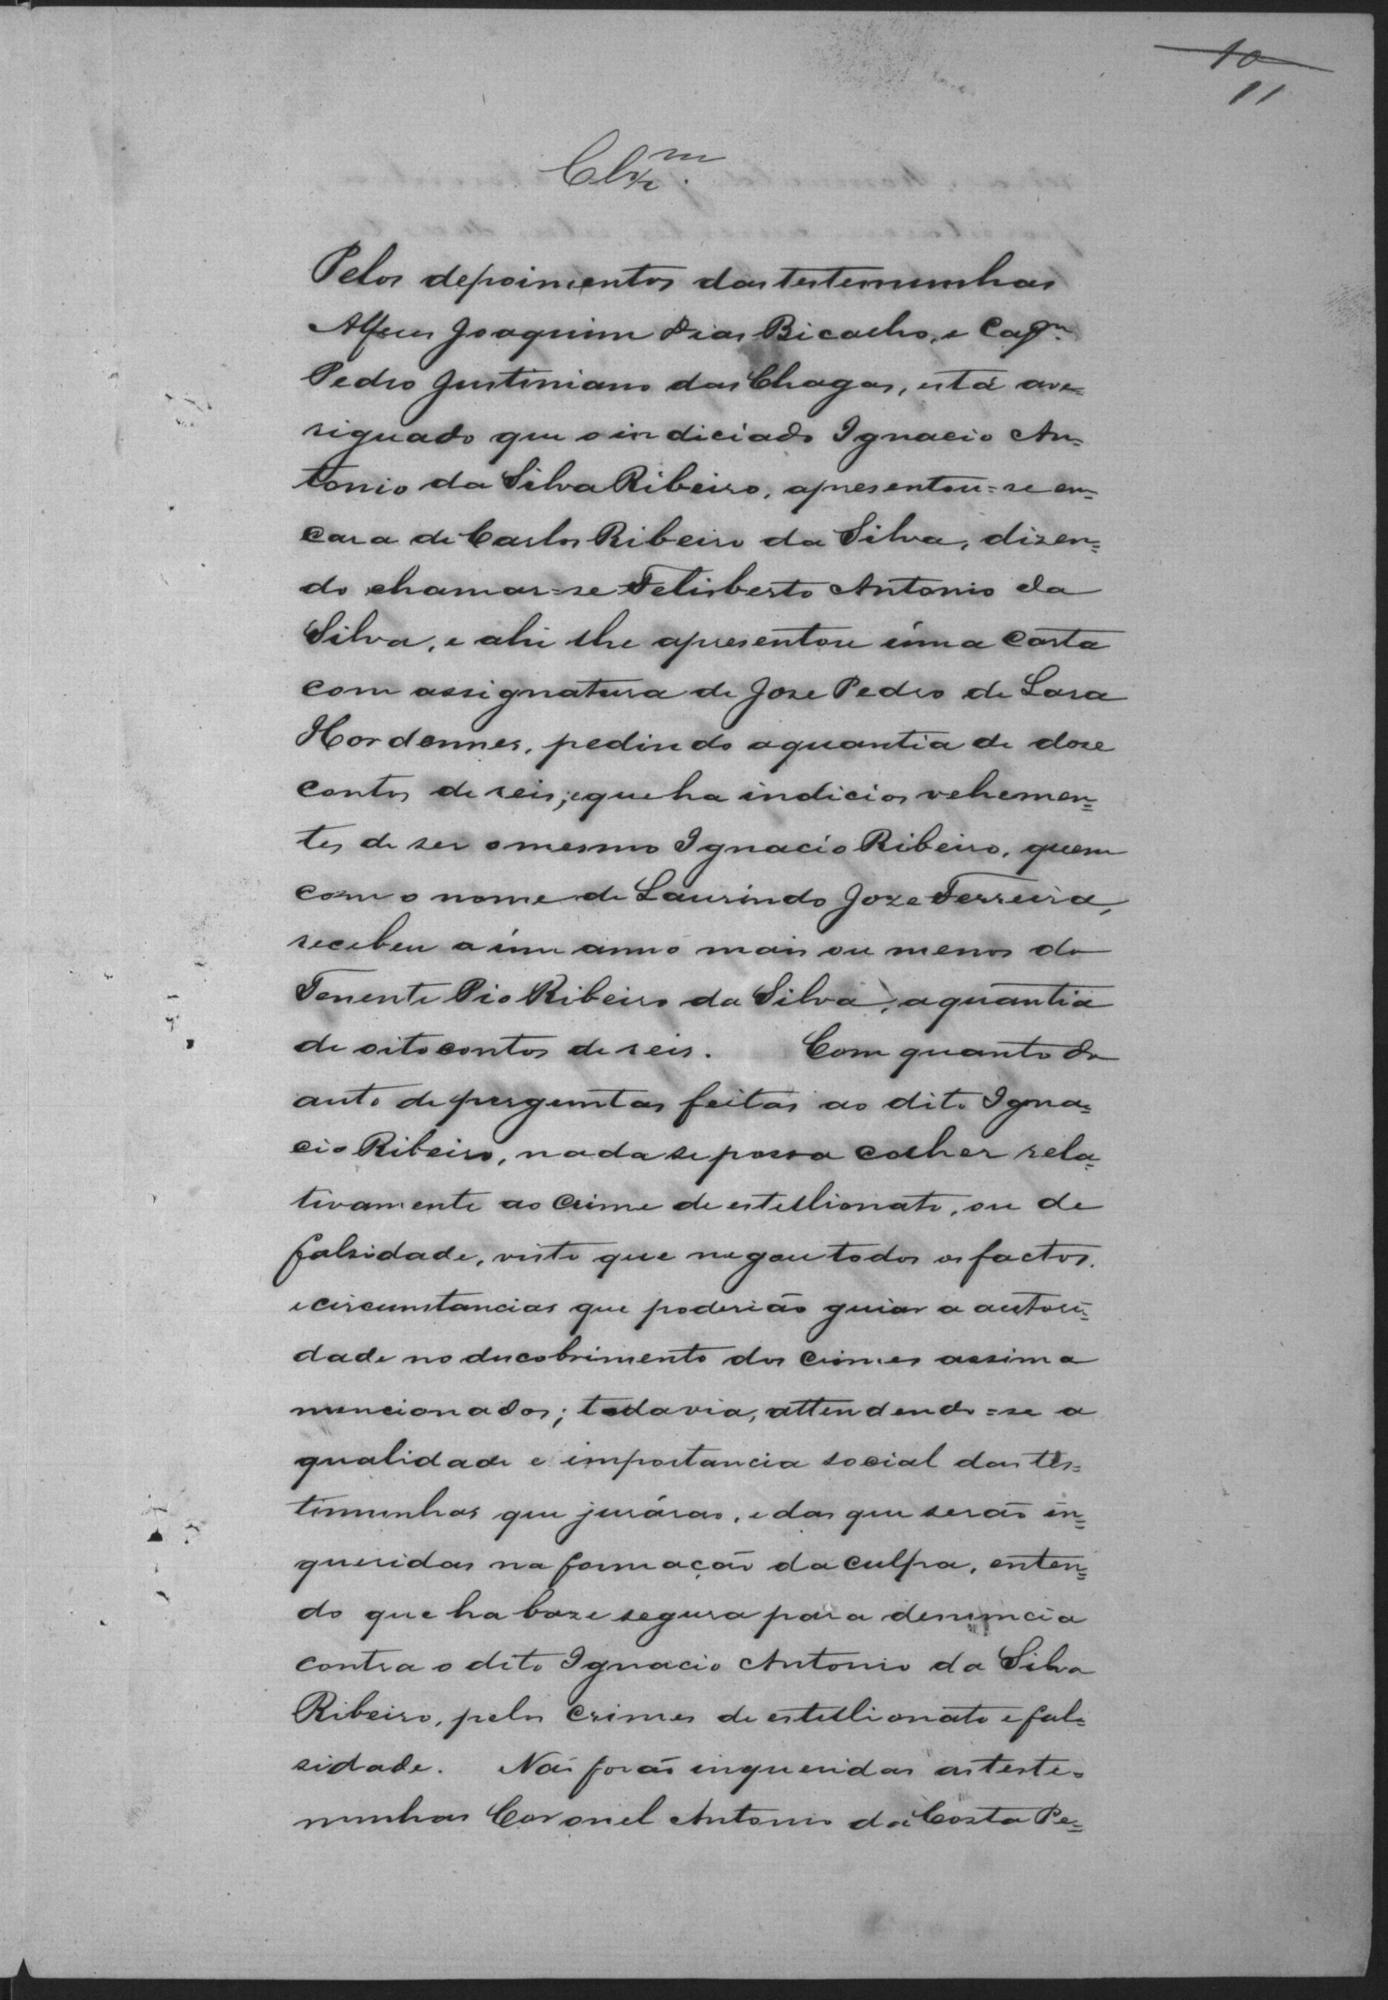 10
11
Clzm.
Pelos depoimentos das testemunhas
Alferes Joaquim Dias Bicalho, e Capm.
Pedro Justiniano das Chagas, está ave=
riguado que o indiciado Ignacio An=
tonio da Silva Ribeiro, apresentou=se em
casa de Carlos Ribeiro da Silva, dizen=
do chamar=se Felisberto Antonio da
Silva, e ahi lhe apresentou úma carta
com assignatura de Joze Pedro de Lara
Hordonnes, pedindo a quantia de doze
contos de reis; e que ha indicios vehemen=
tes de ser o mesmo Ignacio Ribeiro, quem
com o nome de Laurindo Joze Ferreira,
recebeu a úm anno mais ou menos do
Tenente Pio Ribeiro da Silva, a quantia
de oito contos de reis. Com quanto do
auto de perguntas feitas ao dito Igna=
cio Ribeiro, nada se possa colher rela=
tivamente ao crime de estellionato, ou de
falsidade, visto que negou todos os factos.
e circumstancias que poderião guiar a autori=
dade no descobrimento dos crimes assima
mencionados; todavia, attendendo=se a
qualidade e importancia social das tes=
timunhas que jurárao, e das que serão in=
queridas na formação da culpa, enten=
do que ha baze segura para denuncia
contra o dito Ignacio Antonio da Silva
Ribeiro, pelos crimes de estellionato e fal=
sidade. Não forão inqueridas as teste=
munhas Coronel Antonio da Costa Pe=